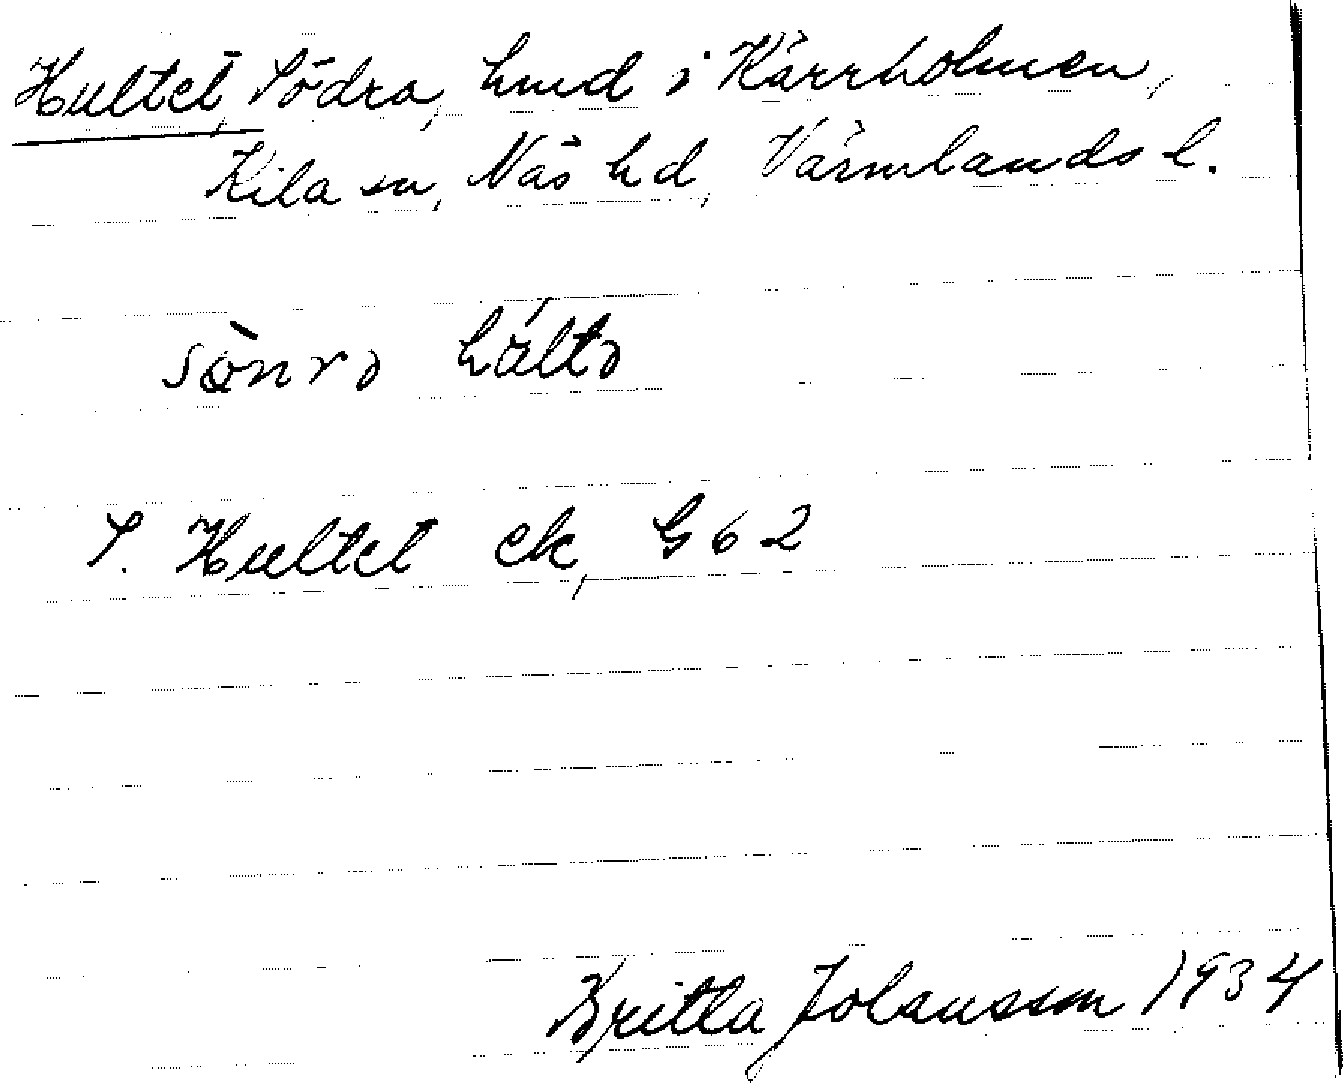 Hultet, Södra, hmd i Kärrholmen,
Kila sn, Näs hd, Värmlands l.
hälto
S. Hultet ek, G 62
Britta Johansson 1934